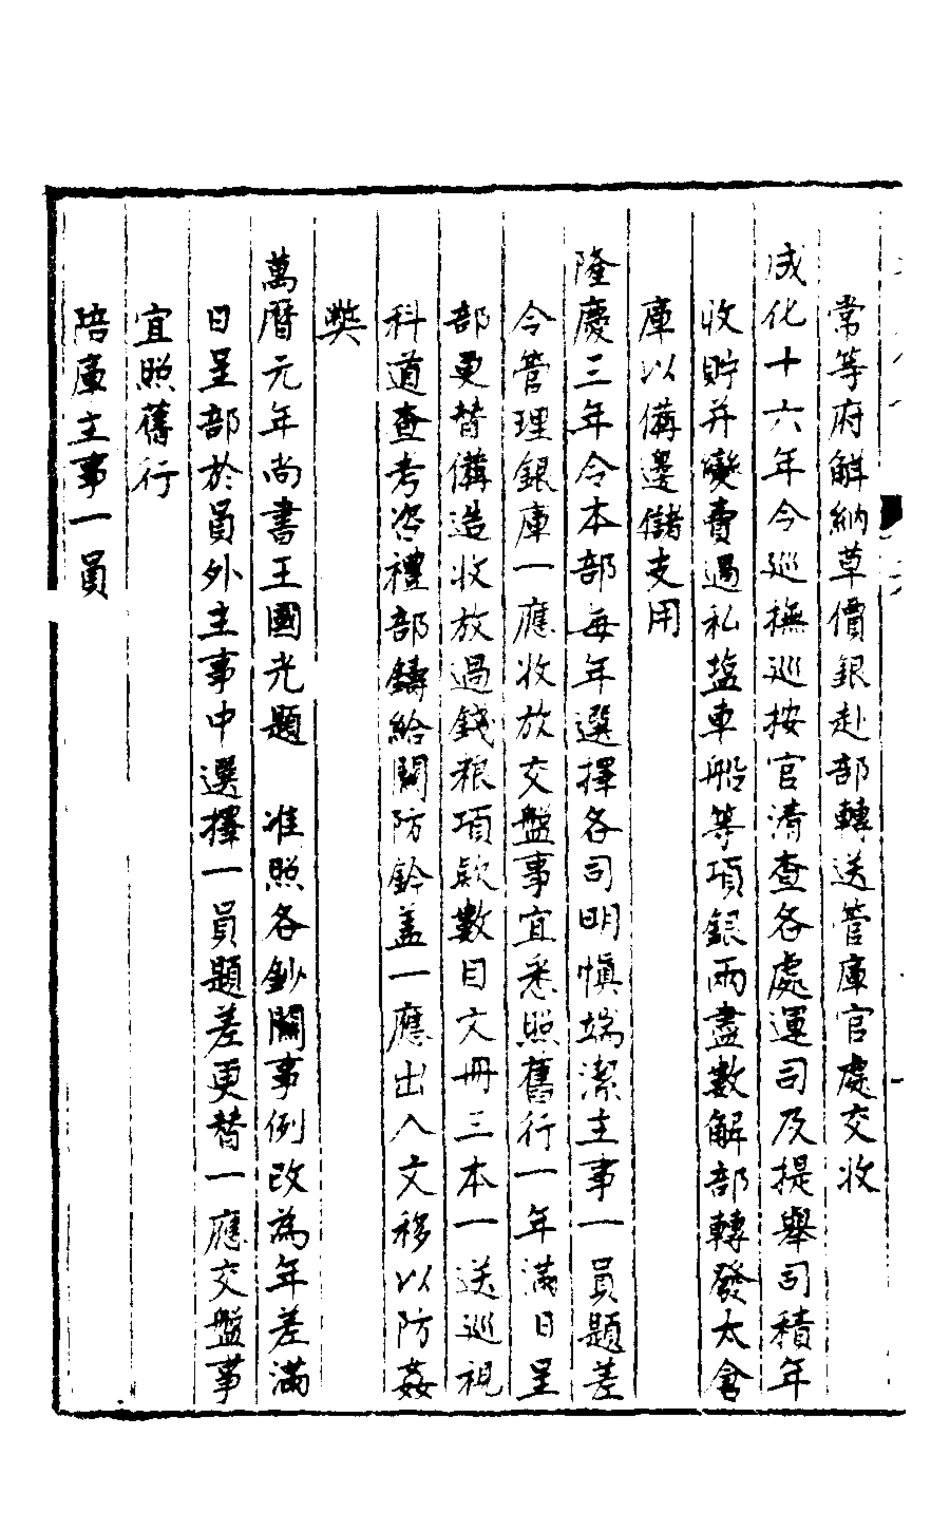 常等府解納草價銀赴部轉送管庫官處交收
成化十六年令巡撫巡按官清查各處運司及提舉司積年
收貯并變賣過私塩車船等項銀兩盡數解部轉發太倉
庫以備邊儲支用
隆慶三年令本部每年選擇各司明慎端潔主事一員題差
令管理銀庫一應收放交盤事宜悉照舊行一年滿日呈
部更替備造收放過錢粮項款數目文冊三本一送巡視
科道查考咨禮部鑄給關防鈐盖一應出入文移以防姦
獘
萬曆元年尚書王國光題　准照各鈔關事例改為年差滿
日呈部於員外主事中選擇一員題差更替一應交盤事
宜照舊行
陪庫主事一員